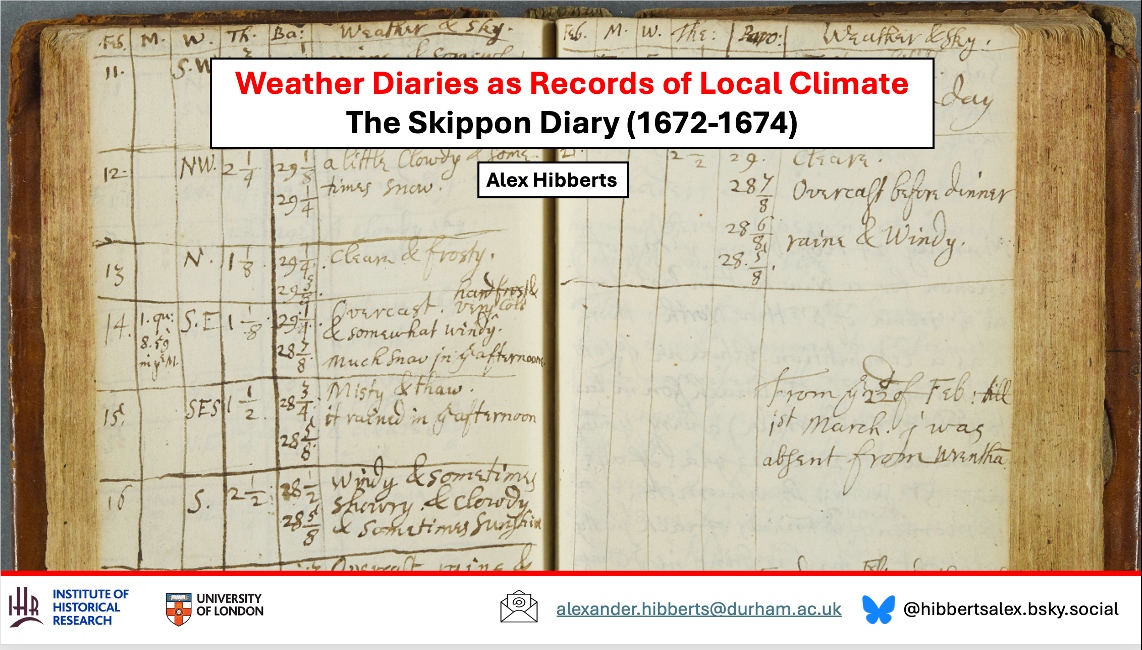 Feb. M. W. Th: Ba: Weather & Sky.
11. S.W
12 NW. 2 1/4 29 1/8 a little Clowdy & some
times snow.
29 1/4
13 N. 1 1/8 29 1/4 Cleare & frosty.
29 3/8
hard frost &
14. 1. qu: S.E 1 1/8 29 1/4 Overcast. very cold
8. 59 & somewhat windy.
28 7/8 Much snow in ye afternoone
15. SES 1 1/2 28 3/4 Misty & thaw.
it rained in ye afternoon
28
16 S. 2 1/2 28 1/2 Windy & sometimes
28 5/8 Showry & Clowdy
& Sometimes Sunshin
Overcast, raine &
Feb. M. W. The: Baro: Weather & Sky.
day
2 1/2 29. Cleare.
28 7/8 Overcast before dinner
28 6/8 raine & Windy.
28. 5/8.
From ye of Feb: till
1st March. j was
absent from Wrentha
Weather Diaries as Records of Local Climate
The Skippon Diary (1672-1674)
Alex Hibberts
IHR
INSTITUTE OF
HISTORICAL
RESEARCH
UNIVERSITY
OF LONDON
alexander.hibberts@durham.ac.uk
@hibbertsalex.bsky.social